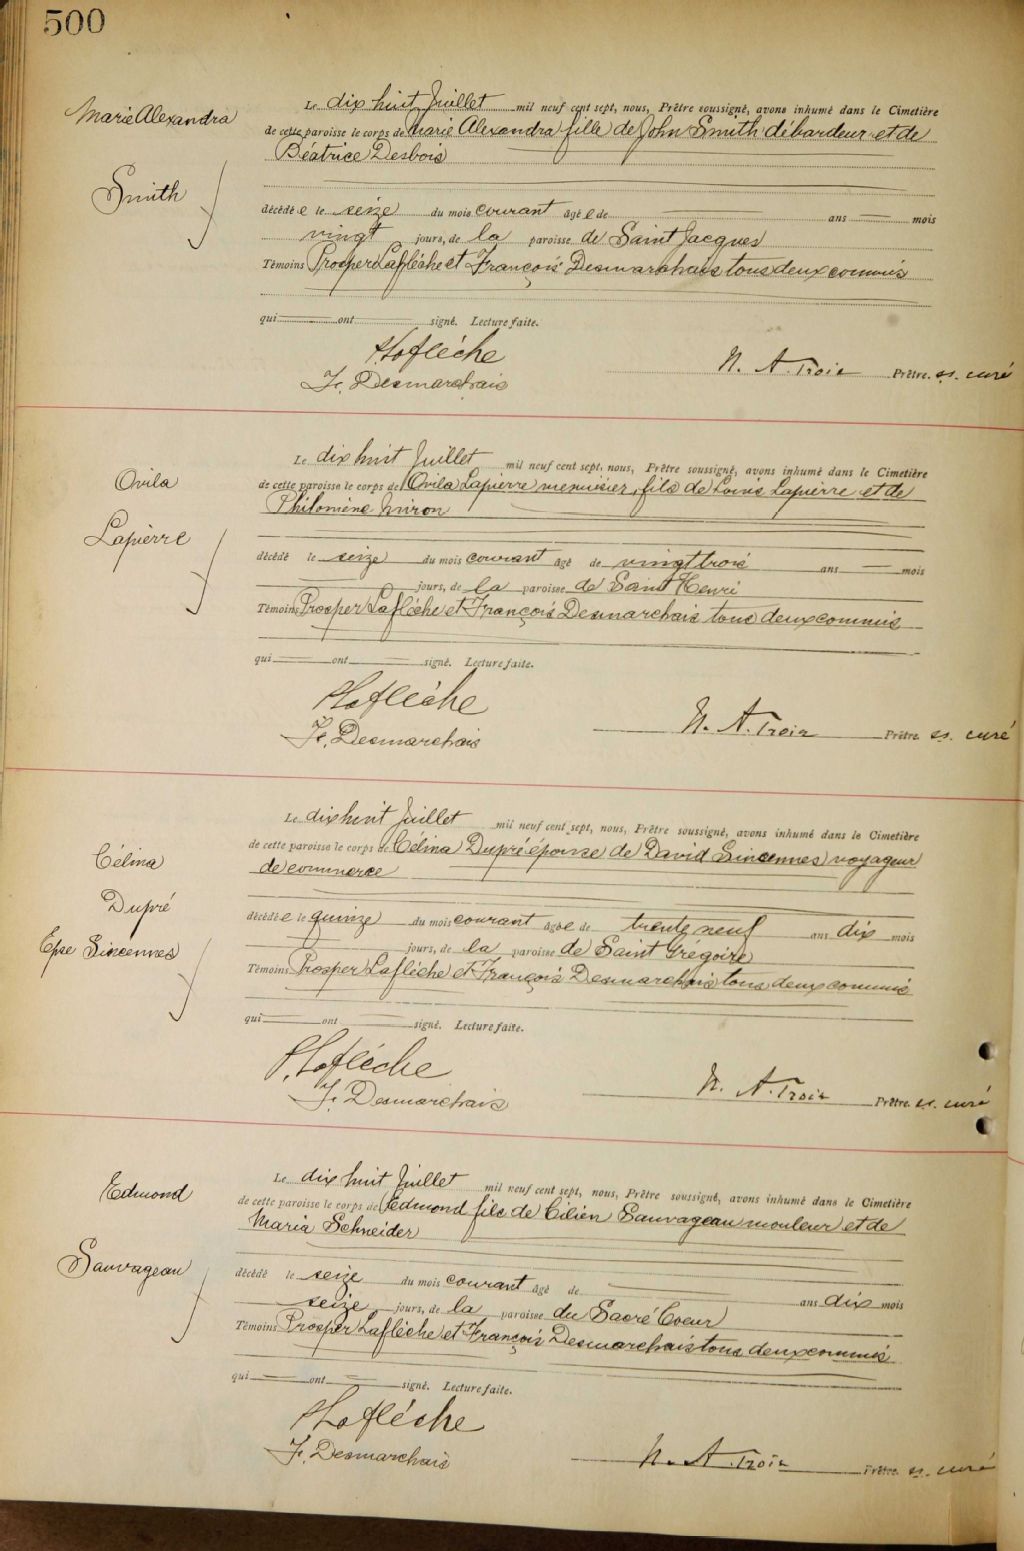 500
Marie Alexandra
Smith
Le dix huit Juillet mil neuf cent sept, nous, Prêtre soussigné, avons inhumé dans le Cimetière
de cette paroisse le corps de Marie Alexandra fille de John Smith débardeur et de
Béatrice Desbois
décédée le seize du mois courant âgée de ans mois
vingt jours, de la paroisse de Saint Jacques
Témoins Prosper Laflèche et François Desmarchais tous deux commis
qui ont signé. Lecture faite.
P Laflèche
F. Desmarchais
N. A. Troie Prêtre. s.s. curé
Ovila
Lapierre
Le dix huit Juillet mil neuf cent sept, nous, Prêtre soussigné, avons inhumé dans le Cimetière
de cette paroisse le corps de Ovila Lapierre menuisier, fils de Louis Lapierre et de
Philomène Miron
décédé le seize du mois courant âgé de vingt trois ans mois
jours, de la paroisse de Saint Henri
Témoins Prosper Laflèche et François Desmarchais tous deux commis
qui ont signé. Lecture faite.
P Laflèche
F. Desmarchais
N. A. Troie Prêtre. s.s. curé
Célina
Dupré
Epse Sincennes
Le dix huit Juillet mil neuf cent sept, nous, Prêtre soussigné, avons inhumé dans le Cimetière
de cette paroisse le corps de Célina Dupré épouse de David Sincennes voyageur
de commerce
décédée le quinze du mois courant âgée de trente neuf ans dix mois
jours, de la paroisse de Saint Grégoire
Témoins Prosper Laflèche et François Desmarchais tous deux commis
qui ont signé. Lecture faite.
P. Laflèche
F. Desmarchais
N. A. Troie Prêtre. s.s. curé
Edmond
Sauvageau
Le dix huit Juillet mil neuf cent sept, nous, Prêtre soussigné, avons inhumé dans le Cimetière
de cette paroisse le corps de Edmond fils de Sauvageau mouleur et de
Maria Schneider
décédé le seize du mois courant âgé de ans dix mois
seize jours, de la paroisse du Sacré Coeur
Témoins Prosper Laflèche et François Desmarchais tous deux commis
qui ont signé. Lecture faite.
P Laflèche
F. Desmarchais
N. A. Troie Prêtre. s.s. curé